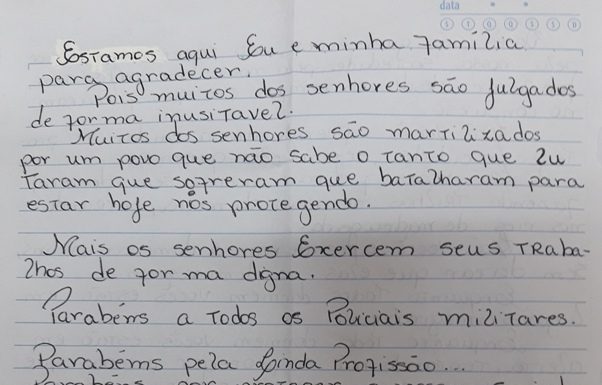 data
S T Q Q S S D
Estamos aqui Eu e minha família
para agradecer.
Pois muitos dos senhores são julgados
de forma inusitavel.
Muitos dos senhores são martilizados
por um povo que não sabe o tanto que lu
taram que sofreram que batalharam para
estar hoje nos protegendo.
Mais os senhores Exercem seus Traba-
lhos de forma digna.
Parabéms a Todos os Policiais militares.
Parabéms pela Linda Profissão...